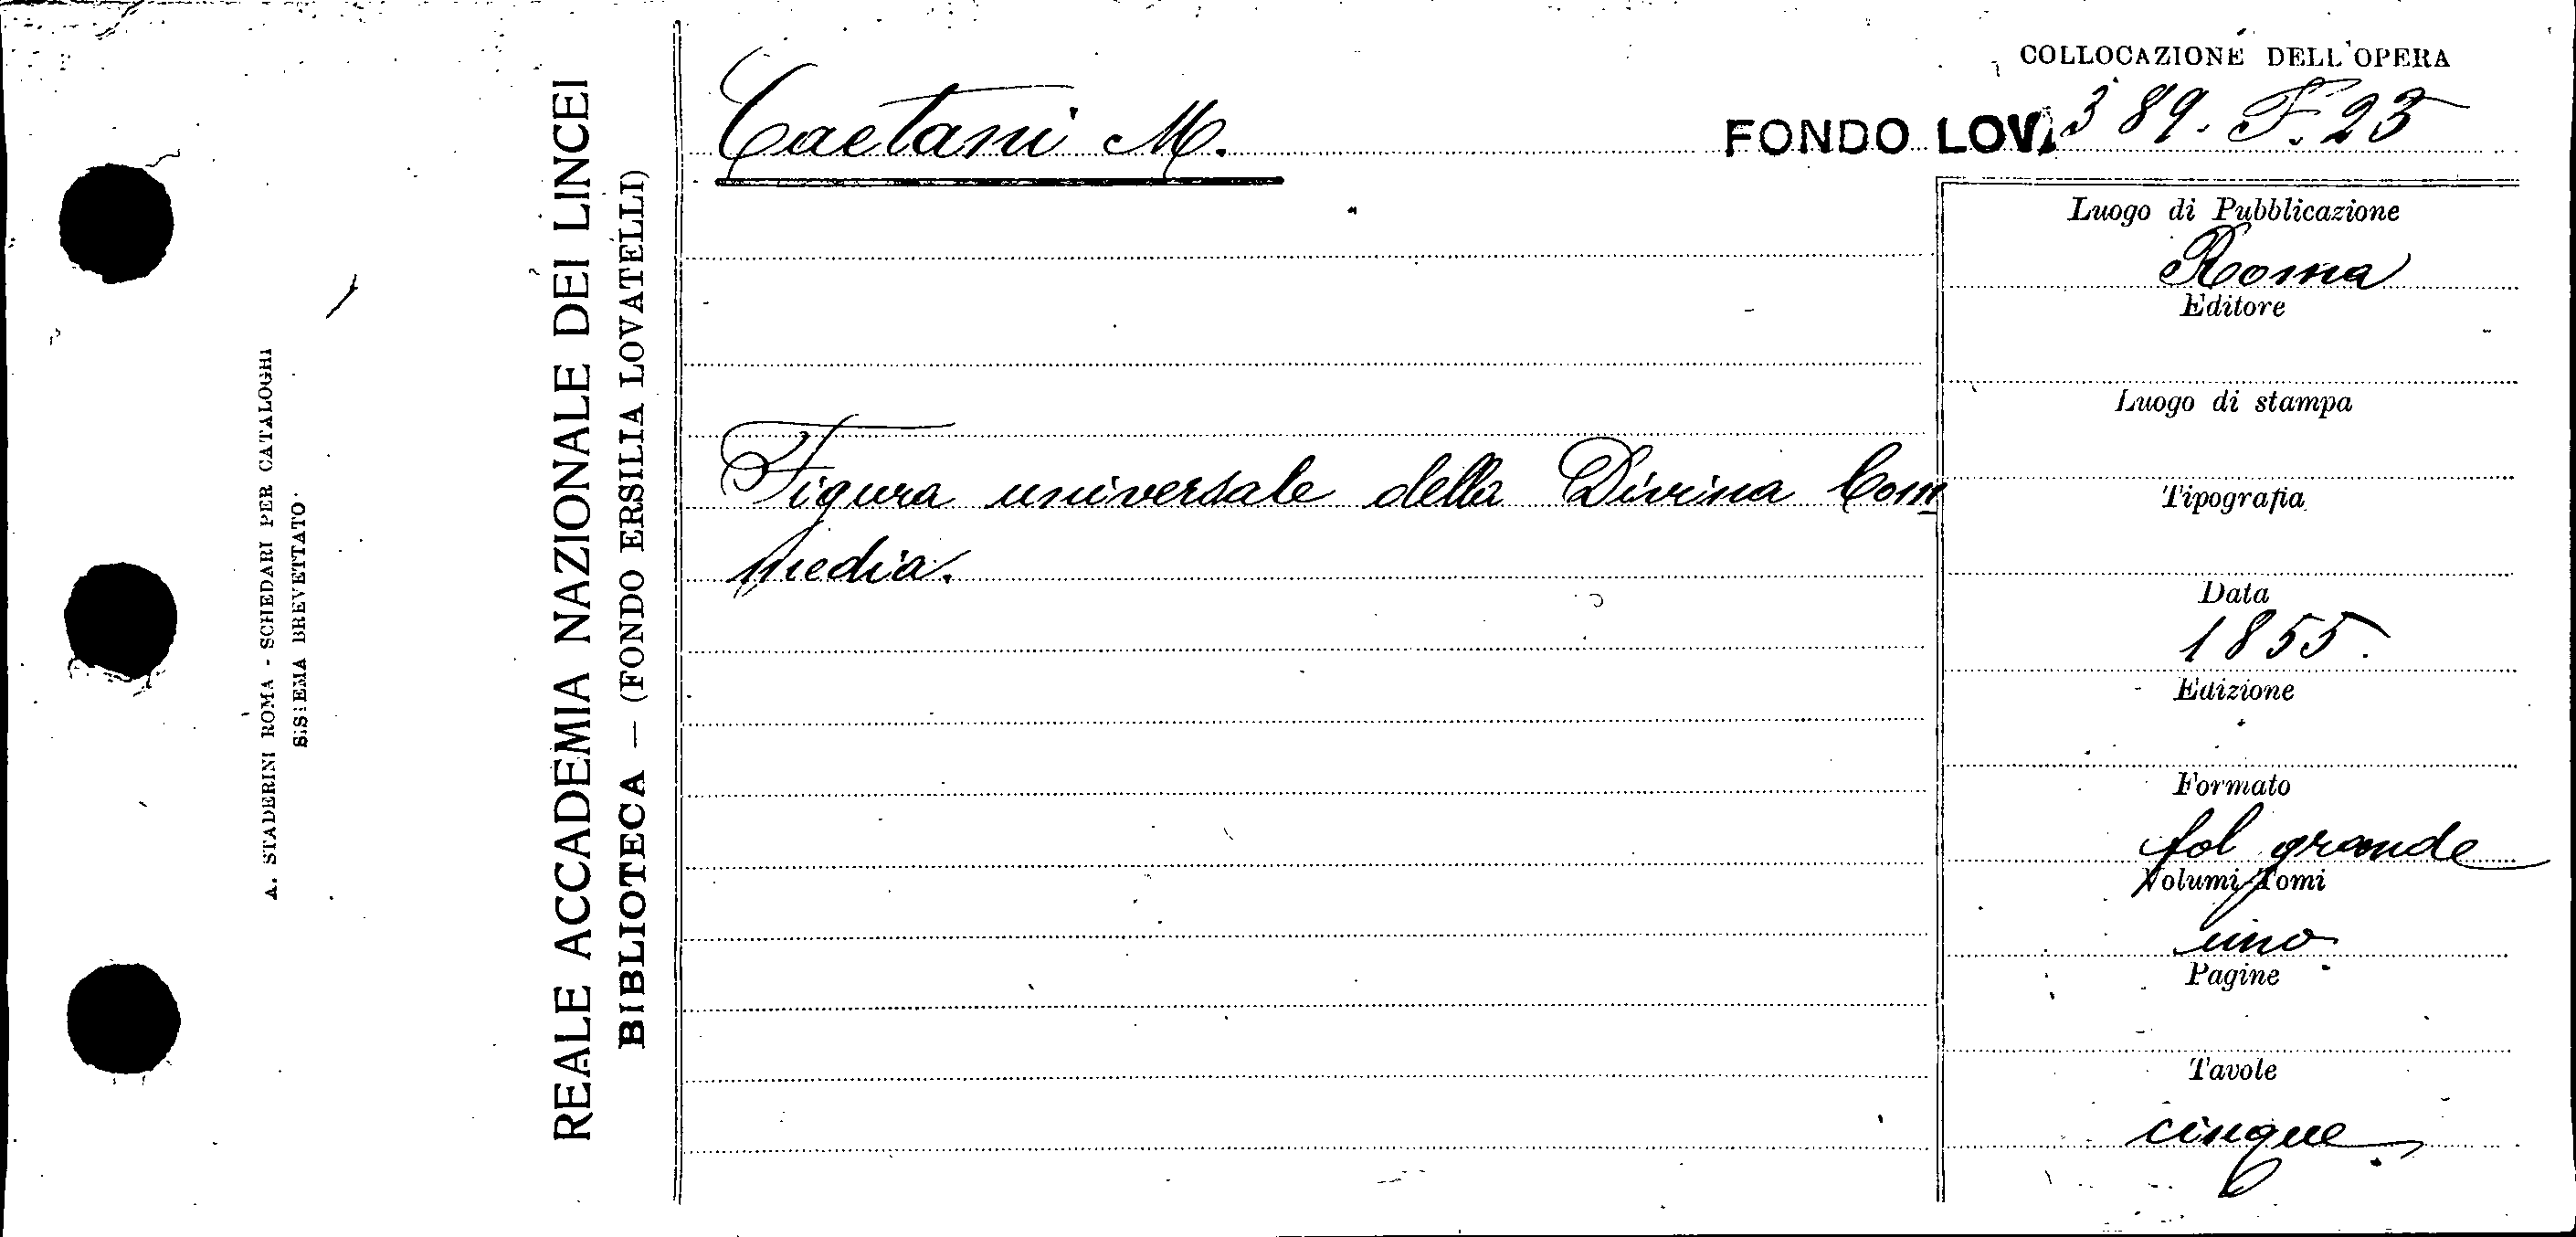 A. STADERINI ROMA - SCHEDARI PER CATALOGHI
SISTEMA BREVETTATO
REALE ACCADEMIA NAZIONALE DEI LINCEI
BIBLIOTECA — (FONDO ERSILIA LOVATELLI)
Caetani M.
COLLOCAZIONE DELL'OPERA
FONDO LOV. 389. F. 23
Figura universale della Divina Com
media.
Luogo di Pubblicazione
Roma
Editore
Luogo di stampa
Tipografia
Data
1855.
Edizione
Formato
fol grande
Volumi-Tomi
uno
Pagine
Tavole
cinque